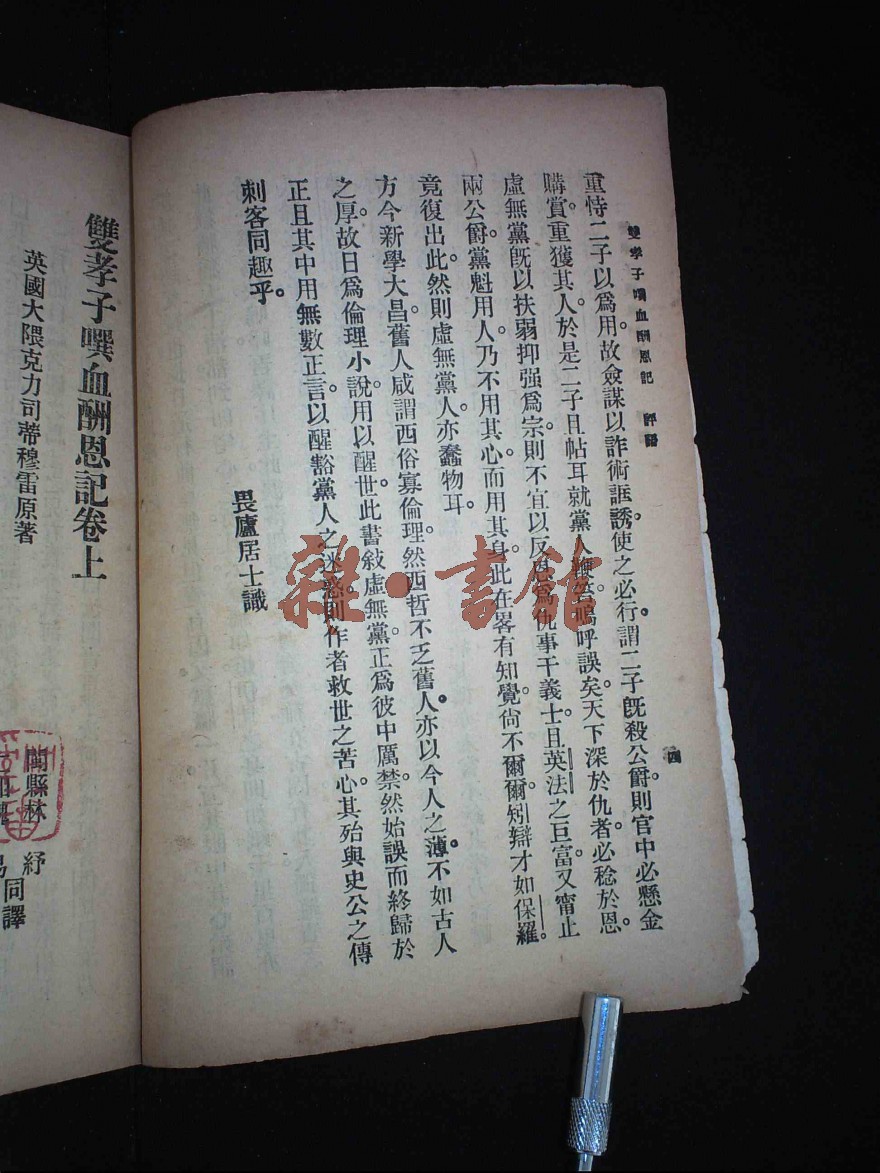 雙孝子噀血酬恩記　評語
四
重恃二子以爲用。故僉謀以詐術誑誘。使之必行。謂二子旣殺公爵。則官中必懸金
購賞。重獲其人。於是二子且帖耳就黨人鞭笞。嗚呼誤矣。天下深於仇者。必稔於恩。
虛無黨旣以扶弱抑强爲宗。則不宜以反恩爲仇事干義士。且英法之巨富。又甯止
兩公爵。黨魁用人。乃不用其心而用其身。此在畧有知覺尙不爾爾。矧辯才如保羅。
竟復出此。然則虛無黨人。亦蠢物耳。
方今新學大昌。舊人咸謂西俗寡倫理。然西哲不乏舊人。亦以今人之薄。不如古人
之厚。故日爲倫理小說。用以醒世。此書敍虛無黨。正爲彼中厲禁。然始誤而終歸於
正。且其中用無數正言。以醒豁黨人之迷惑。則作者救世之苦心。其殆與史公之傳
刺客同趣乎。
畏廬居士識
雙孝子噀血酬恩記卷上
英國大隈克力司蒂穆雷原著
閩縣林紓
同譯
雜·書館